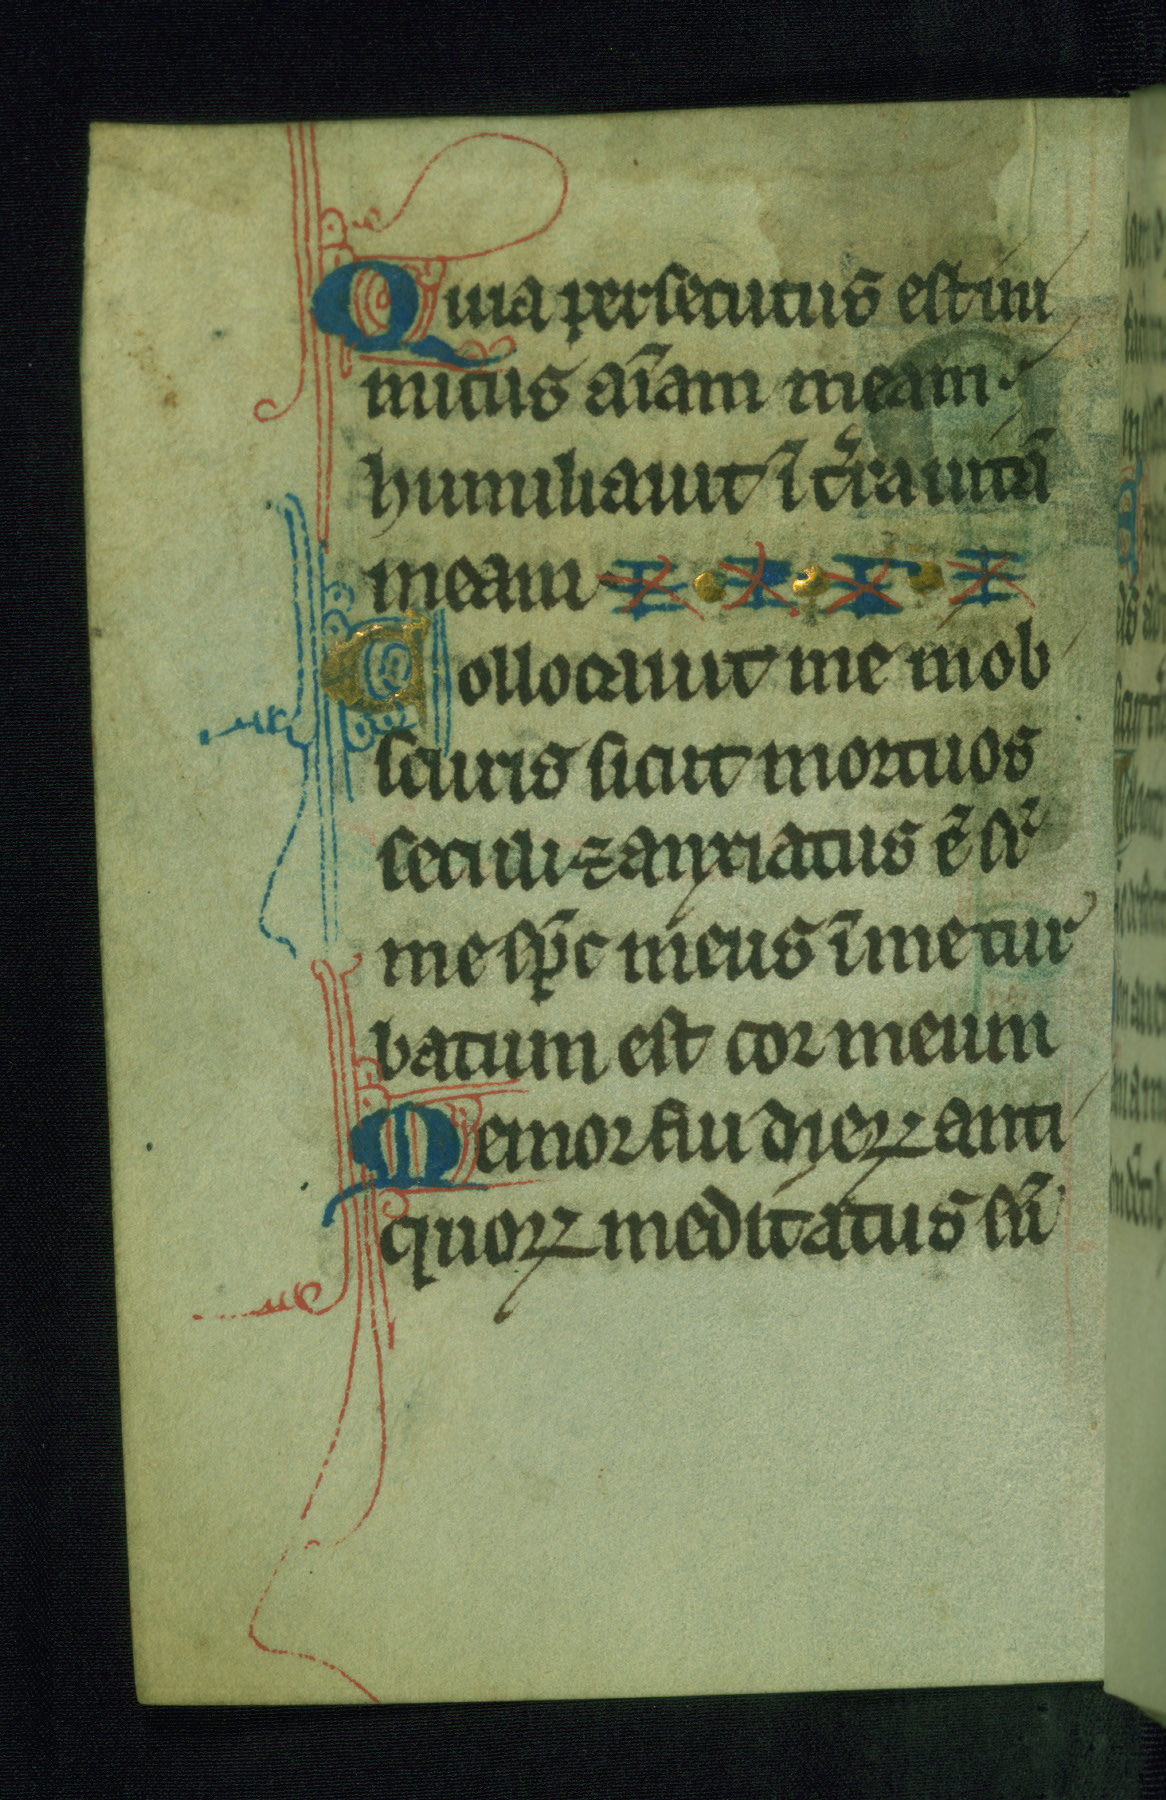 Quia persecutus est ini
micus aīam meam
humiliauit ī t̄ra uitā
meam
Collocauit me in ob
scuris sicut mortuos
seculi ⁊ anxiatus ē sr̄
me sp̄c meus ī me tur
batum est cor meum
Memor fui dierꝝ anti
quorꝝ meditatus sū